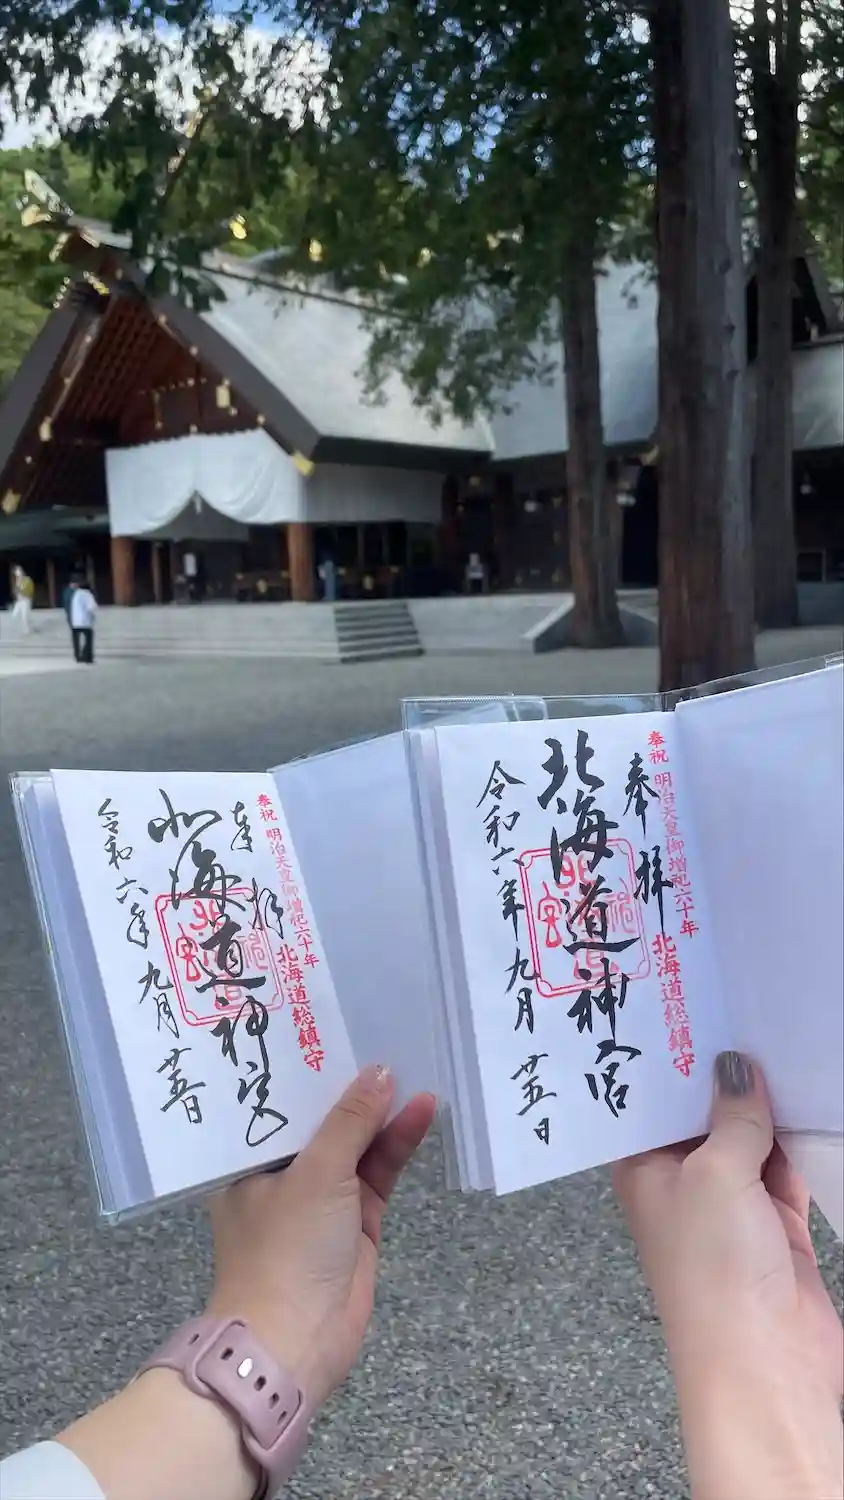 奉祝 明治天皇御増祀六十年
北海道総鎮守
奉拝
北海道神宮
令和六年九月廿五日
奉祝 明治天皇御増祀六十年
北海道総鎮守
奉拝
北海道神宮
令和六年九月廿五日